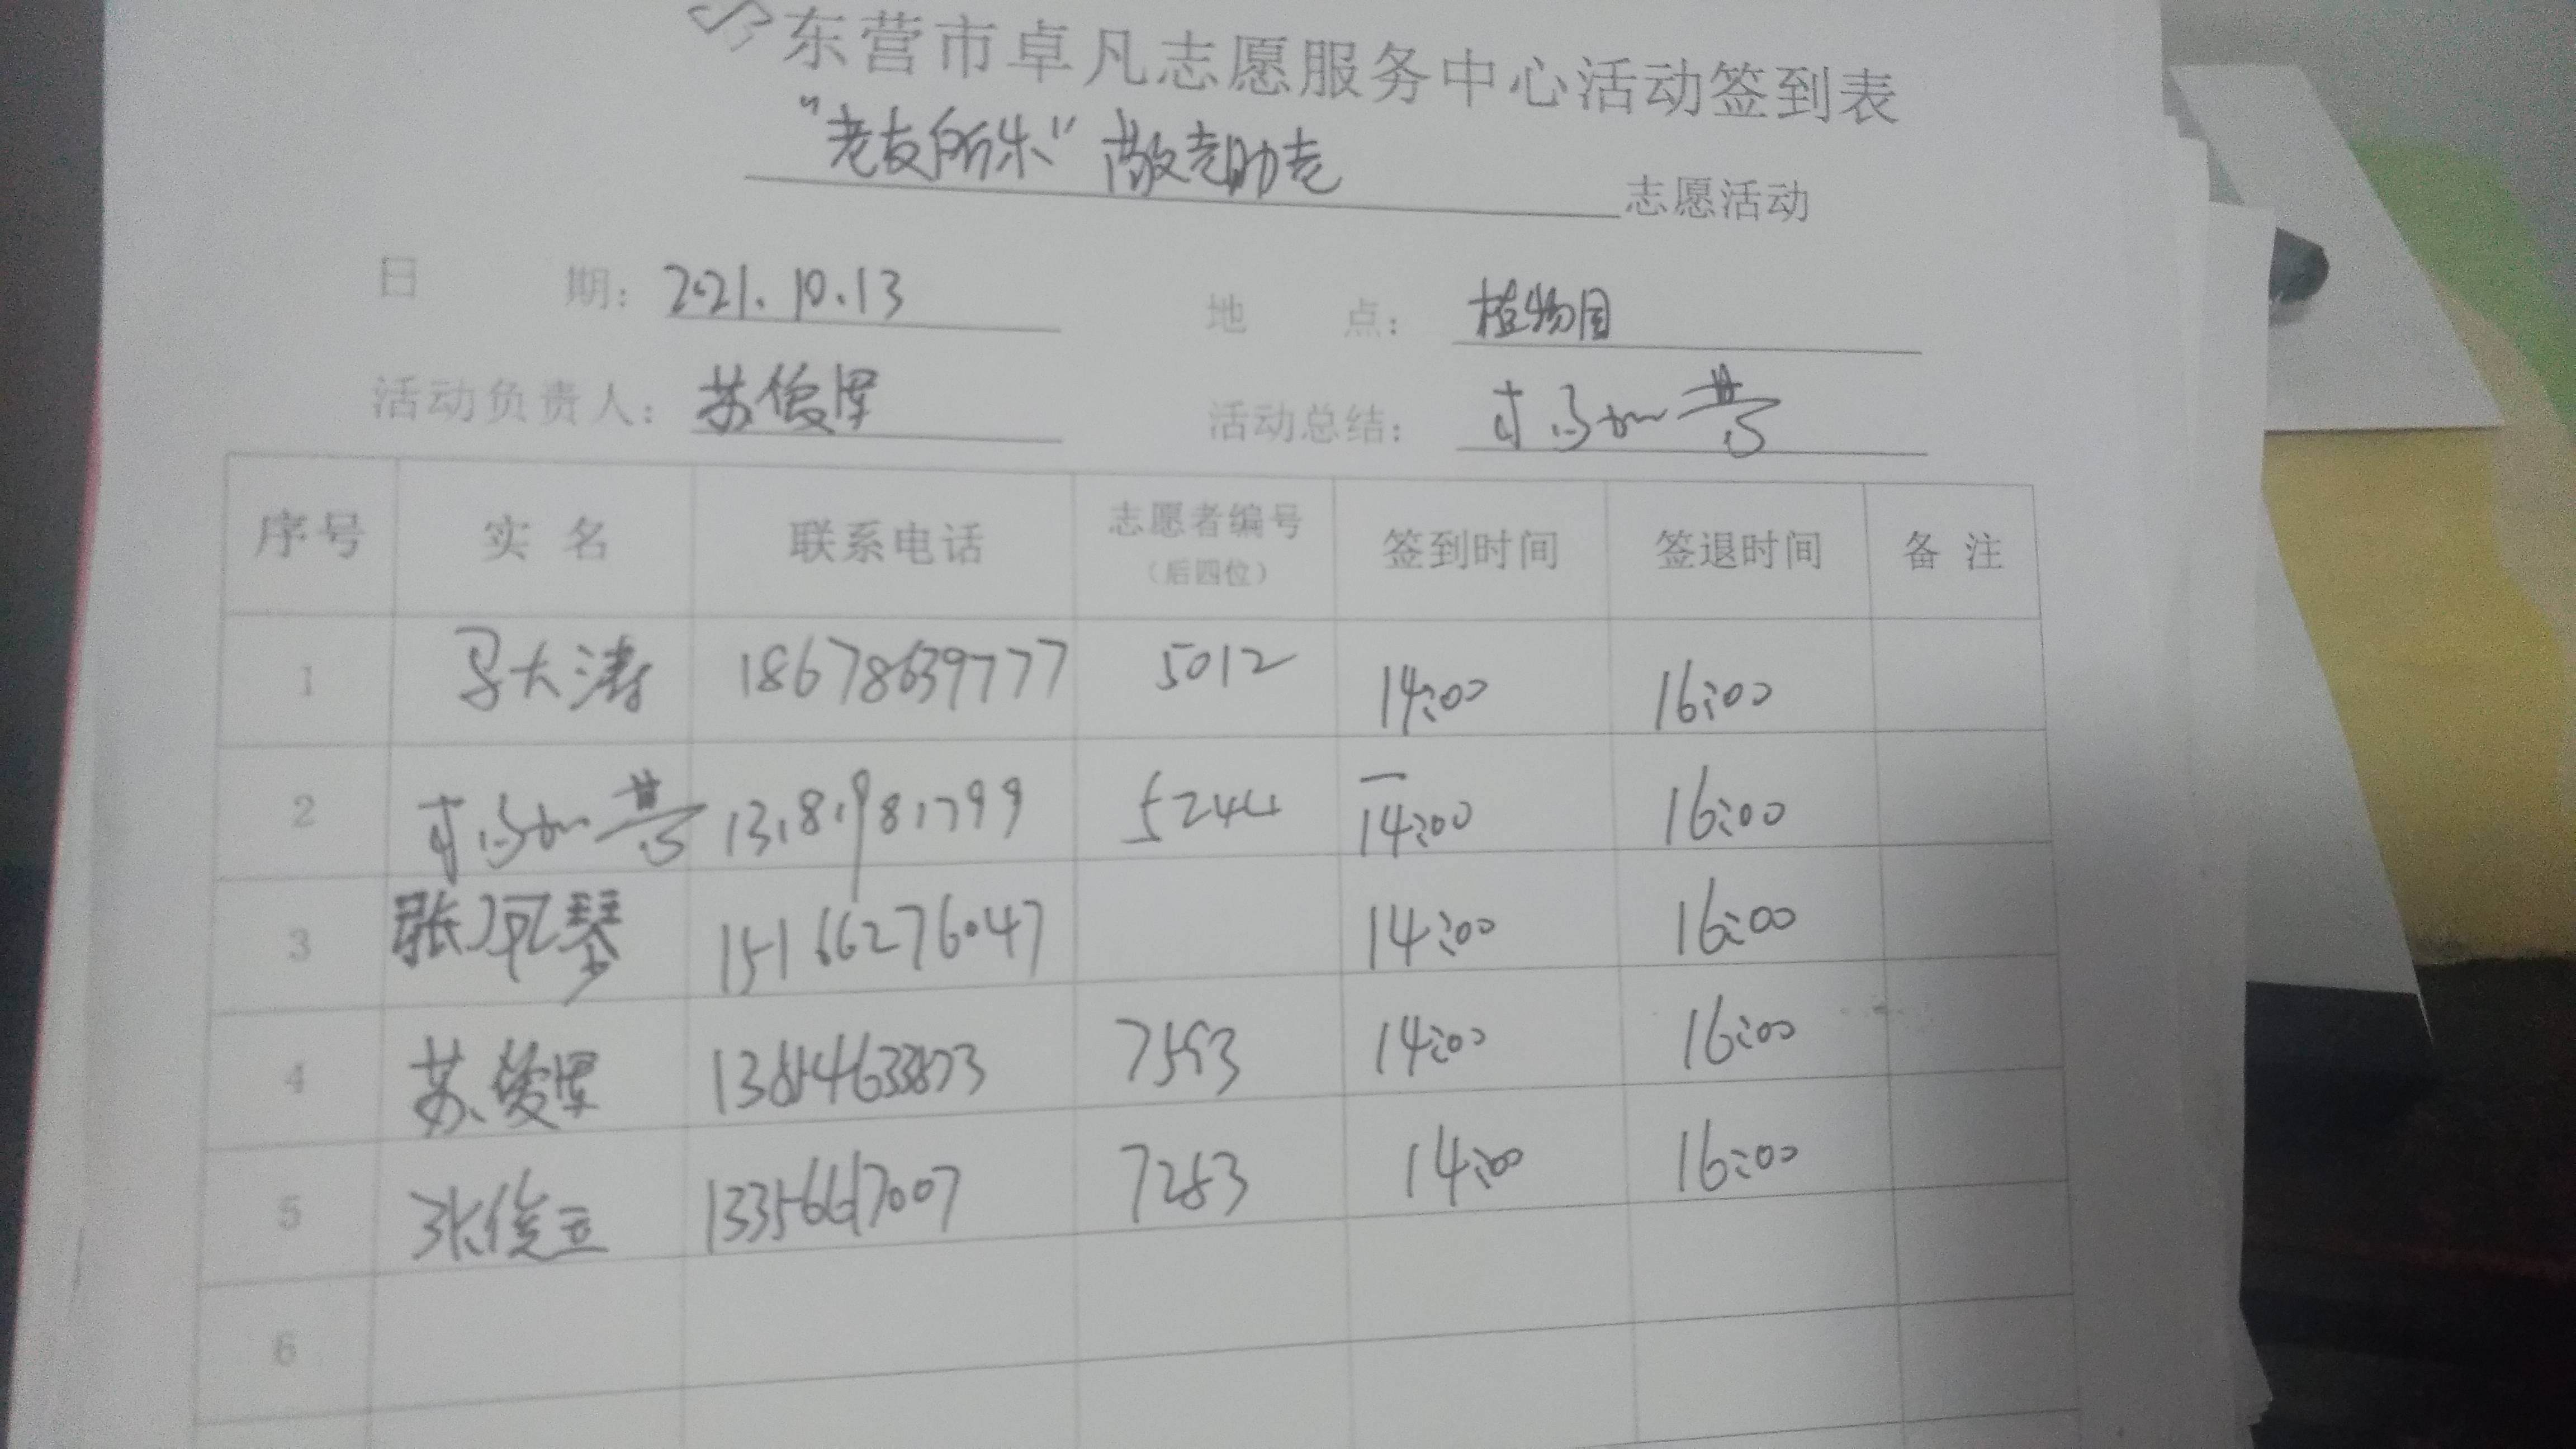 东营市卓凡志愿服务中心活动签到表
"老友所乐"敬老助老 志愿活动
日 期: 2021.10.13 地 点: 植物园
活动负责人: 苏俊 活动总结:
序号 实 名 联系电话 志愿者编号 (后四位) 签到时间 签退时间 备 注
1 马大涛 18678639777 5012 14:00 16:00
2 13181981799 5244 14:00 16:00
3 张凤琴 15166276047 14:00 16:00
4 苏俊 7593 14:00 16:00
5 张俊 13356617007 7263 14:00 16:00
6